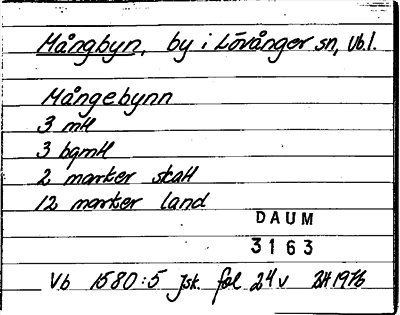 Mångbyn, by i Lövånger sn, Vb.l.
Mångebynn
3 mtl
3 bgmtl
2 marker skatt
12 marker land
DAUM
3163
Vb 1580:5 Jsk. fol 24v BH 1976